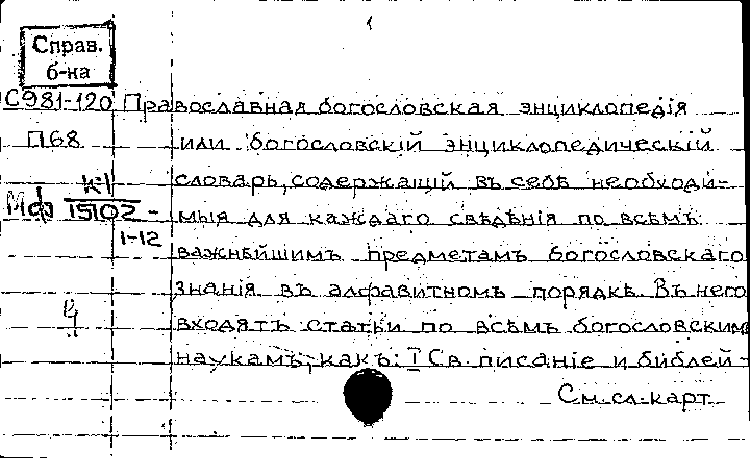 1
Справ.
б-ка
С981-120 Православная богословская энциклопедія
П68 или богословскій энциклопедическій
словарь, содержащій въ себѣ необходи-
Мф К-1/15102 - мыя для каждаго свѣдѣнія по всѣмъ
1-12 важнѣйшимъ предметамъ богословскаго
знанія въ алфавитномъ порядкѣ. Въ него
входятъ статьи по всѣмъ богословскимъ
наукамъ, какъ: I Св. писаніе и библей-
См. сл. карт.